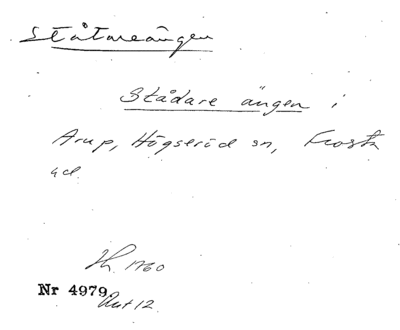 Ståtareängen
Stådare ängen i
Arup, Högseröd sn, Frosta
hd.
Lh. 1760
Nr 4979. Akt 12.